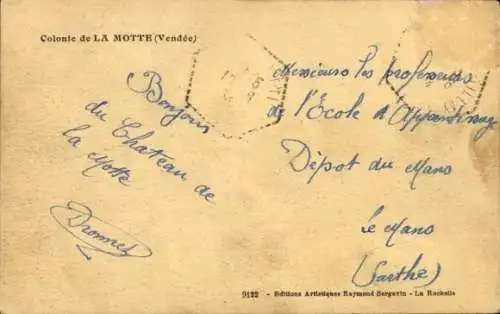 Colonie de LA MOTTE (Vendée)
Bonjour
du Chateau de
la Motte
Messieurs les professeurs
de l'École d'Apprentissage
Dépôt du Mans
Le Mans
(Sarthe)
9122 - Editions Artistiques Raymond Bergevin - La Rochelle